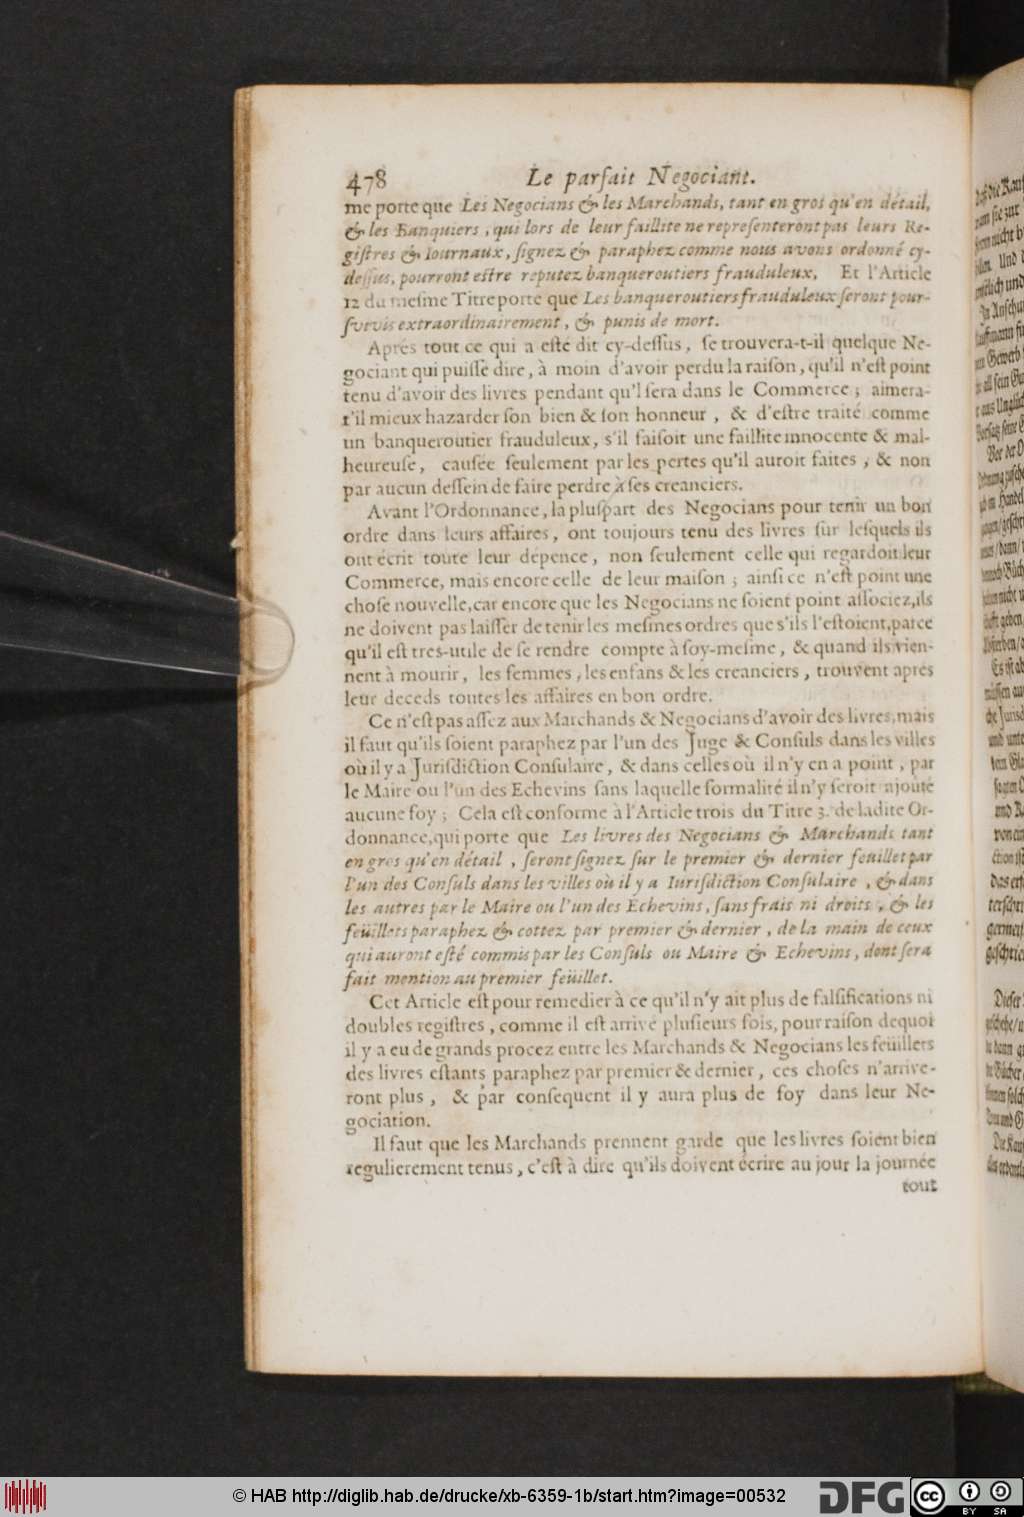 478 Le parfait Negociant.
me porte que Les Negocians & les Marchands, tant en gros qu'en détail,
& les Banquiers, qui lors de leur faillite ne representeront pas leurs Re-
gistres & Iournaux, signez & paraphez comme nous avons ordonné cy-
dessus, pourront estre reputez banqueroutiers frauduleux, Et l'Article
12 du mesme Titre porte que Les banqueroutiers frauduleux seront pour-
suivis extraordinairement, & punis de mort.
Aprés tout ce qui a esté dit cy-dessus, se trouvera-t-il quelque Ne-
gociant qui puisse dire, à moin d'avoir perdu la raison, qu'il n'est point
tenu d'avoir des livres pendant qu'l sera dans le Commerce; aimera-
t'il mieux hazarder son bien & son honneur, & d'estre traité comme
un banqueroutier frauduleux, s'il faisoit une faillite innocente & mal-
heureuse, causée seulement par les pertes qu'il auroit faites, & non
par aucun dessein de faire perdre à ses creanciers.
Avant l'Ordonnance, la pluspart des Negocians pour tenir un bon
ordre dans leurs affaires, ont toujours tenu des livres sur lesquels ils
ont écrit toute leur dépence, non seulement celle qui regardoit leur
Commerce, mais encore celle de leur maison; ainsi ce n'est point une
chose nouvelle, car encore que les Negocians ne soient point associez, ils
ne doivent pas laisser de tenir les mesmes ordres que s'ils l'estoient, parce
qu'il est tres-utile de se rendre compte à soy-mesme, & quand ils vien-
nent à mourir, les femmes, les enfans & les creanciers, trouvent aprés
leur deceds toutes les affaires en bon ordre.
Ce n'est pas assez aux Marchands & Negocians d'avoir des livres, mais
il faut qu'ils soient paraphez par l'un des Juge & Consuls dans les villes
où il y a Jurisdiction Consulaire, & dans celles où il n'y en a point, par
le Maire ou l'un des Echevins sans laquelle formalité il n'y seroit ajouté
aucune foy; Cela est conforme à l'Article trois du Titre 3. de ladite Or-
donnance, qui porte que Les livres des Negocians & Marchands tant
en gros qu'en détail, seront signez sur le premier & dernier feuillet par
l'un des Consuls dans les villes où il y a Iurisdiction Consulaire, & dans
les autres par le Maire ou l'un des Echevins, sans frais ni droits, & les
feüillets paraphez & cottez par premier & dernier, de la main de ceux
qui auront esté commis par les Consuls ou Maire & Echevins, dont sera
fait mention au premier feüillet.
Cet Article est pour remedier à ce qu'il n'y ait plus de falsifications ni
doubles registres, comme il est arrivé plusieurs fois, pour raison dequoi
il y a eu de grands procez entre les Marchands & Negocians les feüillets
des livres estants paraphez par premier & dernier, ces choses n'arrive-
ront plus, & par consequent il y aura plus de foy dans leur Ne-
gociation.
Il faut que les Marchands prennent garde que les livres soient bien
regulierement tenus, c'est à dire qu'ils doivent écrire au jour la journée
tout
© HAB http://diglib.hab.de/drucke/xb-6359-1b/start.htm?image=00532
DFG
cc
BY SA